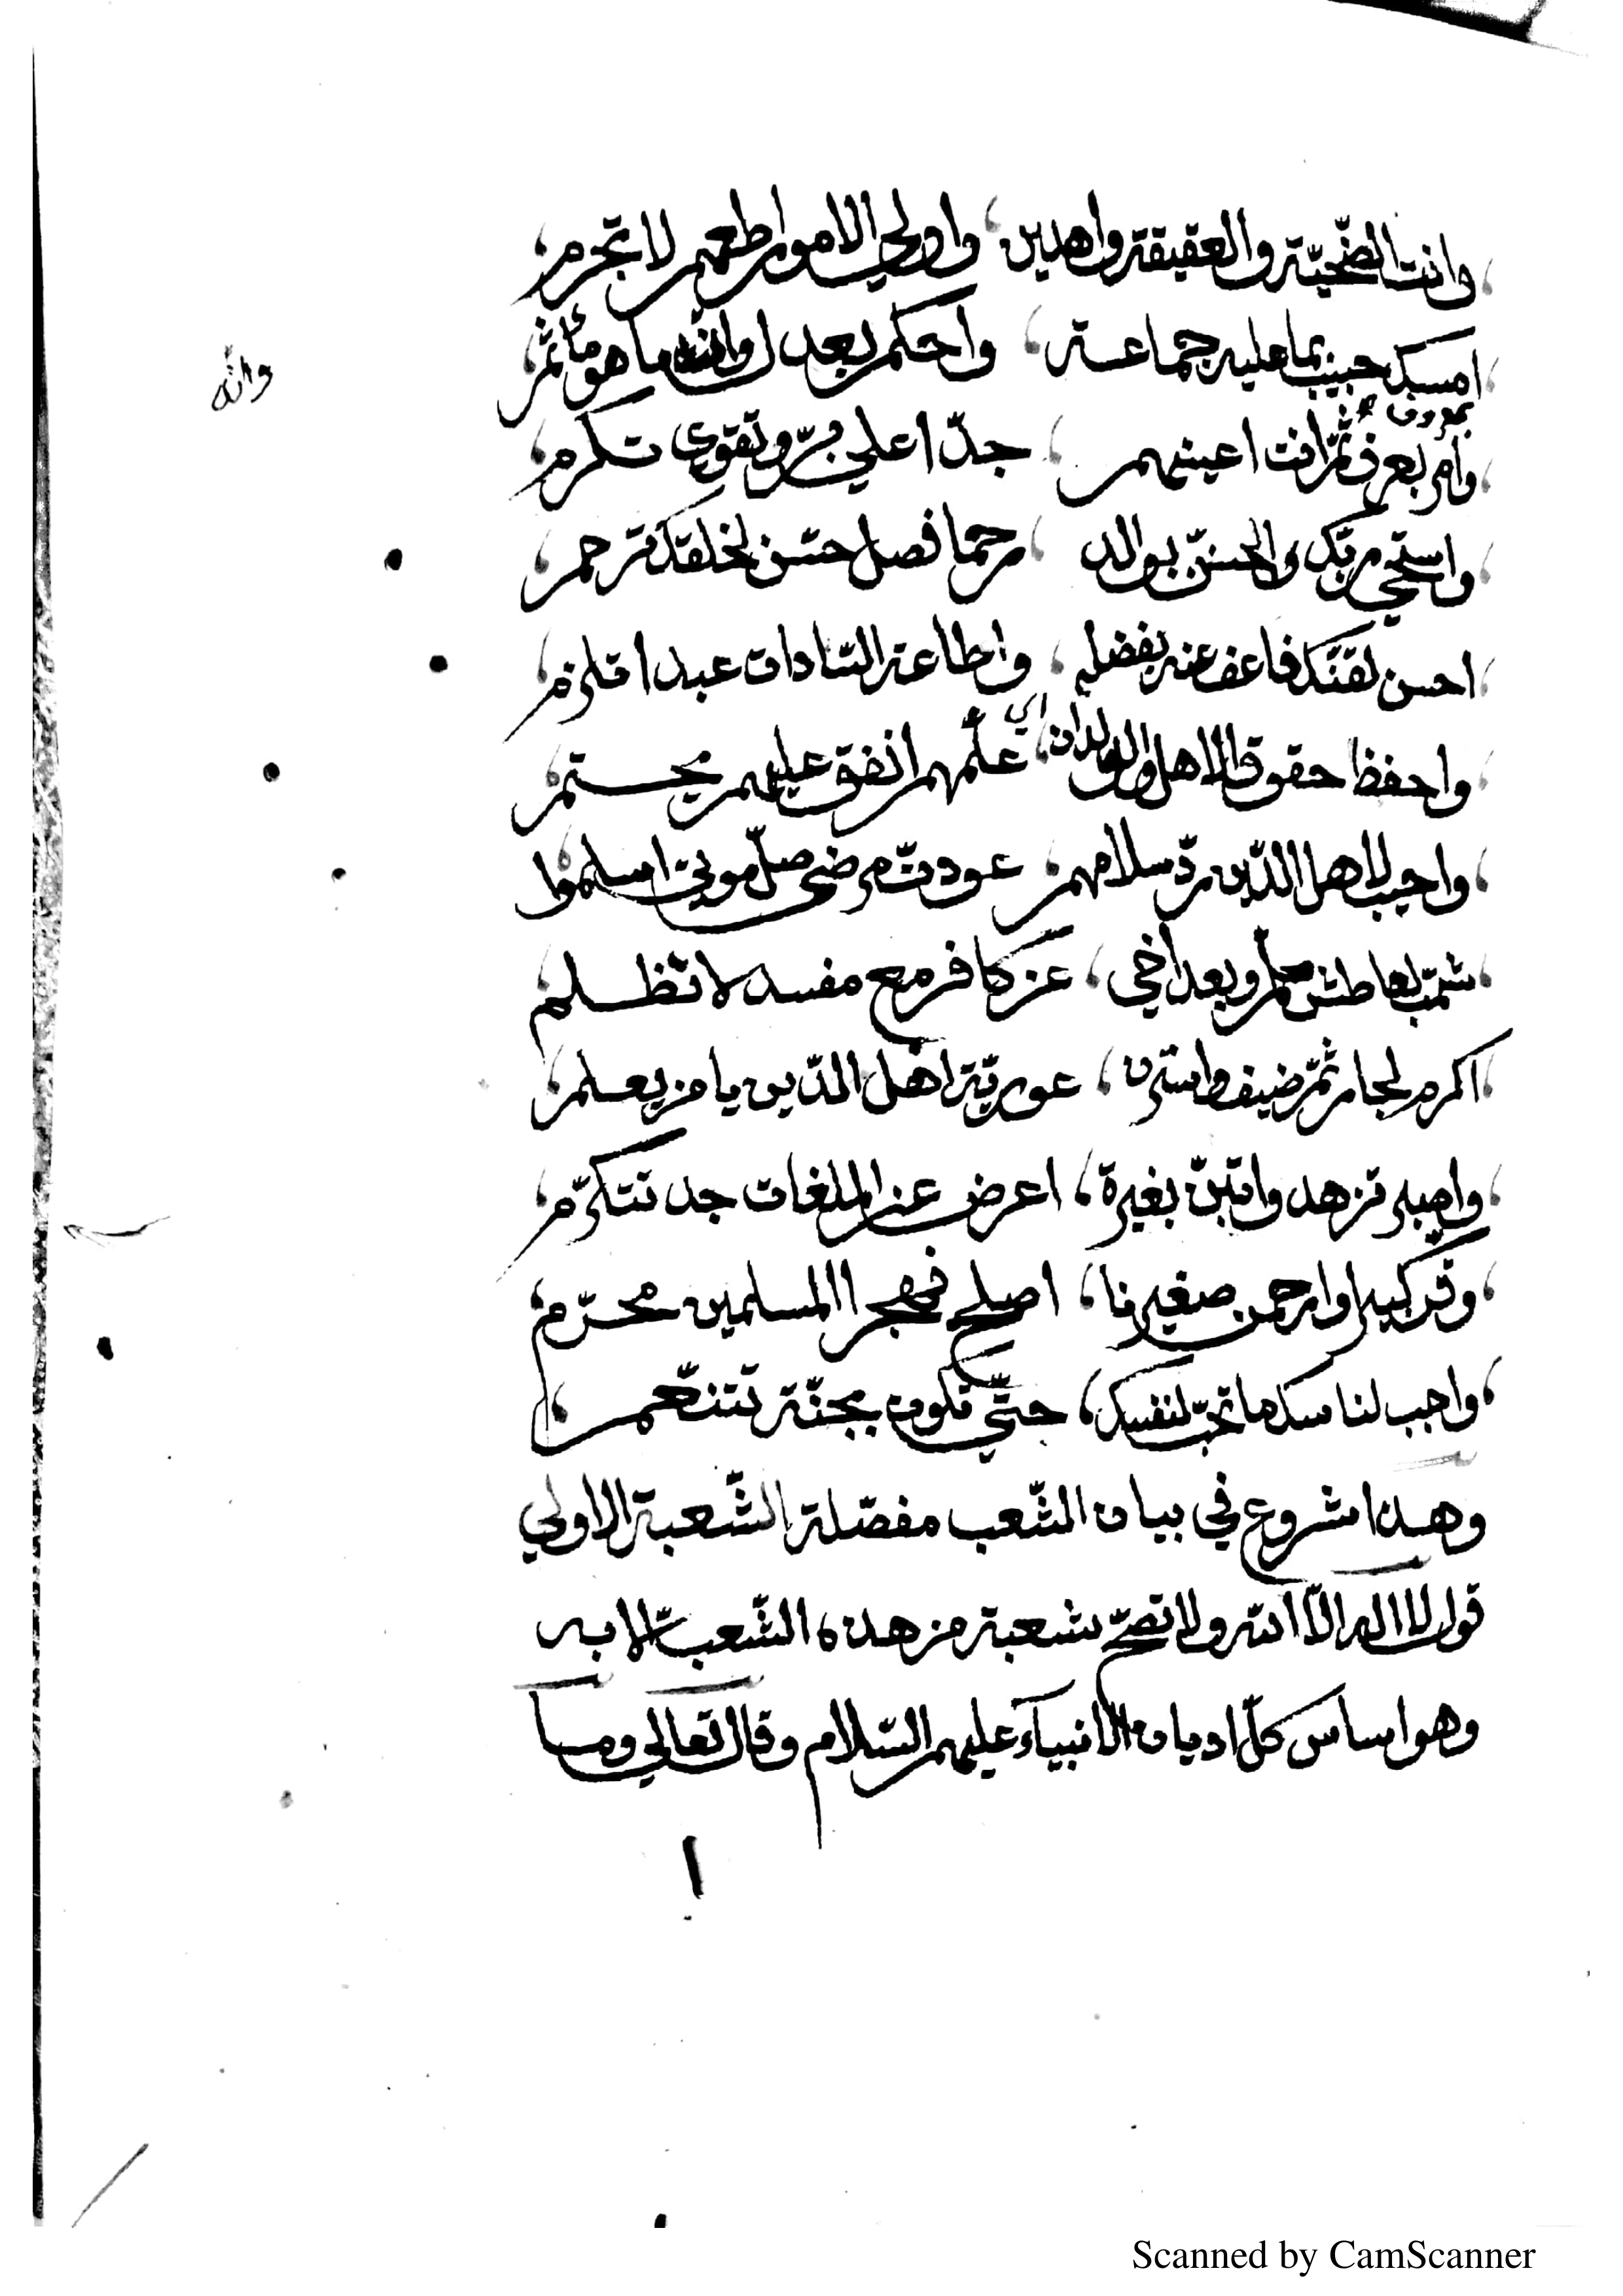 وات الضّحيّة والعقيقة واهدين ، واولي الامور اطعهم لا تجرم
امسك حبيب بما عليه جماعة ، واحكم بعدل وانه ما هو مأثم
والله
بمعروف
وأمر بعرف ثمّ انت اعينهم ، جدّا علي برّ وتقوى تكرم
واستحي ربّك والحسنّ بوالد ، رحما فصل حسّن لخلقك ترحم
احسن لقنّك فاعف عنه بفضله ، واطاعة السّادات عبد اقلزم
واحفظ حقوق الاهل والولدان اي ، علّمهم انفق عليهم يحستم
واجب لاهل الدّين ردّ سلامهم ، عودنّ مرضى صلّ موتى اسلموا
شمّت لعاطش حمد وبعد اخي ، عن كافر مع مفسد لا تظلم
اكرم لجار ثمّ ضيف واسترن ، عوريّة اهل الدّين يا من يعلم
واصبر تزهد واقتبنّ بغيرة ، اعرض عن الملغات جد تتكرّم
وقّر كبيرا وارحمن صغيرنا ، اصلح فهجر المسلمين محرّم
واحبب لناسك ما تحبّ لنفسك ، حتّي تكون بجنّة تتنعّم
وهذا شروع في بيان الشّعب مفصّلة الشّعبة الاولي
قول لا اله الاّ الله ولا تصحّ شعبة من هذه الشّعب الا به
وهو اساس كلّ اديان الانبيآء عليهم السّلام وقال تعالي وما
١
Scanned by CamScanner